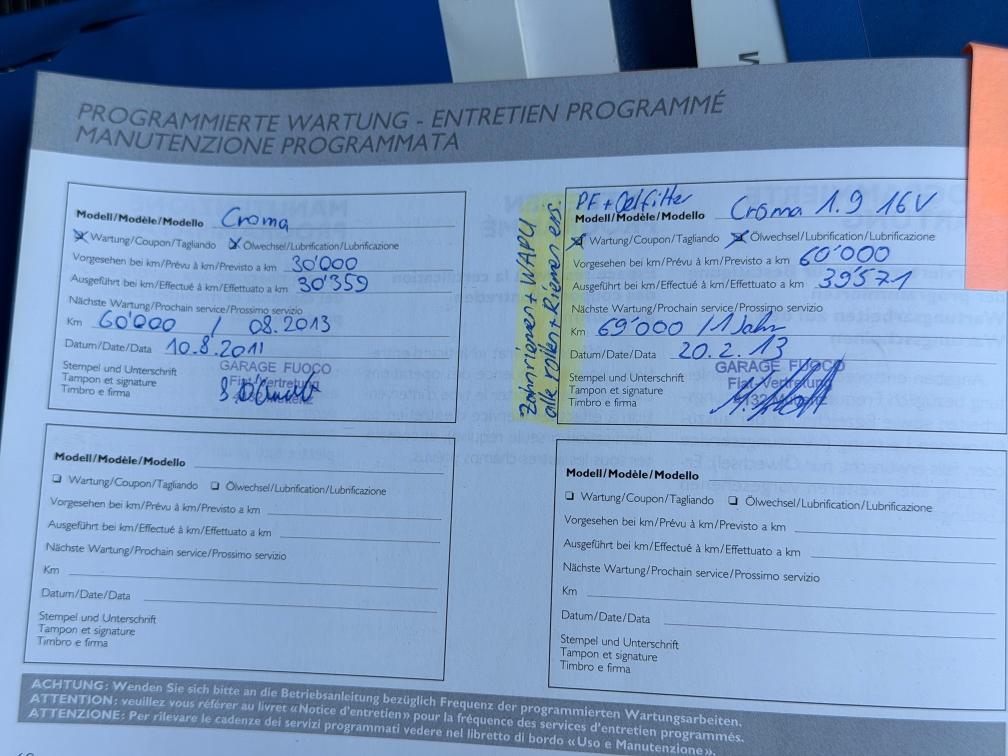 PROGRAMMIERTE WARTUNG - ENTRETIEN PROGRAMMÉ
MANUTENZIONE PROGRAMMATA
Modell/Modèle/Modello Croma
Wartung/Coupon/Tagliando Ölwechsel/Lubrification/Lubrificazione
Vorgesehen bei km/Prévu à km/Previsto a km 30'000
Ausgeführt bei km/Effectué à km/Effettuato a km 30'359
Nächste Wartung/Prochain service/Prossimo servizio
Km 60'000 / 08.2013
Datum/Date/Data 10.8.2011
Stempel und Unterschrift
Tampon et signature
Timbro e firma
GARAGE FUOCO
Fiat-Vertretung
Zahnriemen + WAPU
alle rollen + Riemen ers.
PF + Oelfilter
Modell/Modèle/Modello Croma 1.9 16V
Wartung/Coupon/Tagliando Ölwechsel/Lubrification/Lubrificazione
Vorgesehen bei km/Prévu à km/Previsto a km 60'000
Ausgeführt bei km/Effectué à km/Effettuato a km 39'571
Nächste Wartung/Prochain service/Prossimo servizio
Km 69'000 / 1 Jahr
Datum/Date/Data 20.2.13
Stempel und Unterschrift
Tampon et signature
Timbro e firma
GARAGE FUOCO
Fiat-Vertretung
Modell/Modèle/Modello
Wartung/Coupon/Tagliando Ölwechsel/Lubrification/Lubrificazione
Vorgesehen bei km/Prévu à km/Previsto a km
Ausgeführt bei km/Effectué à km/Effettuato a km
Nächste Wartung/Prochain service/Prossimo servizio
Km
Datum/Date/Data
Stempel und Unterschrift
Tampon et signature
Timbro e firma
Modell/Modèle/Modello
Wartung/Coupon/Tagliando Ölwechsel/Lubrification/Lubrificazione
Vorgesehen bei km/Prévu à km/Previsto a km
Ausgeführt bei km/Effectué à km/Effettuato a km
Nächste Wartung/Prochain service/Prossimo servizio
Km
Datum/Date/Data
Stempel und Unterschrift
Tampon et signature
Timbro e firma
ACHTUNG: Wenden Sie sich bitte an die Betriebsanleitung bezüglich Frequenz der programmierten Wartungsarbeiten.
ATTENTION: veuillez vous référer au livret «Notice d'entretien» pour la fréquence des services d'entretien programmés.
ATTENZIONE: Per rilevare le cadenze dei servizi programmati vedere nel libretto di bordo «Uso e Manutenzione».